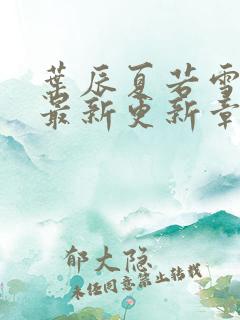 葉辰夏若雪
最新更新章
郁大隐
未经同意禁止转载